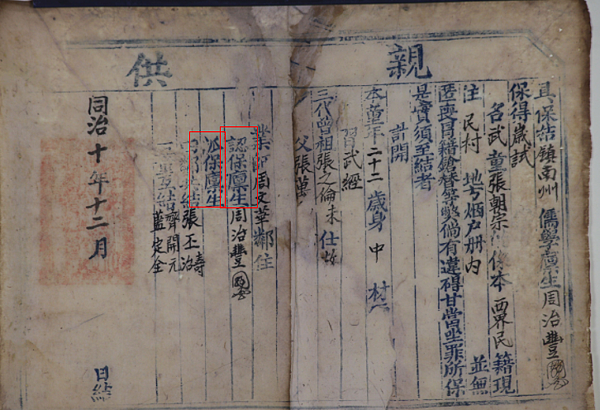 親供
具保結鎮南州儒學廩生周治豐
保得歲試
各武童張朝宗係本界民籍現
住民村地方烟戶册內並無
匿喪冒籍鎗替等弊倘有違碍甘當坐罪所保
是實須至結者
計開
本童年二十二歲身中材
習武經
三代曾祖張之倫未仕故
父張
業師周文華鄰住
認保廩生周治豐
派保廩生
結張丕濤
互結齊開元
藍定全
同治十年十二月
日結